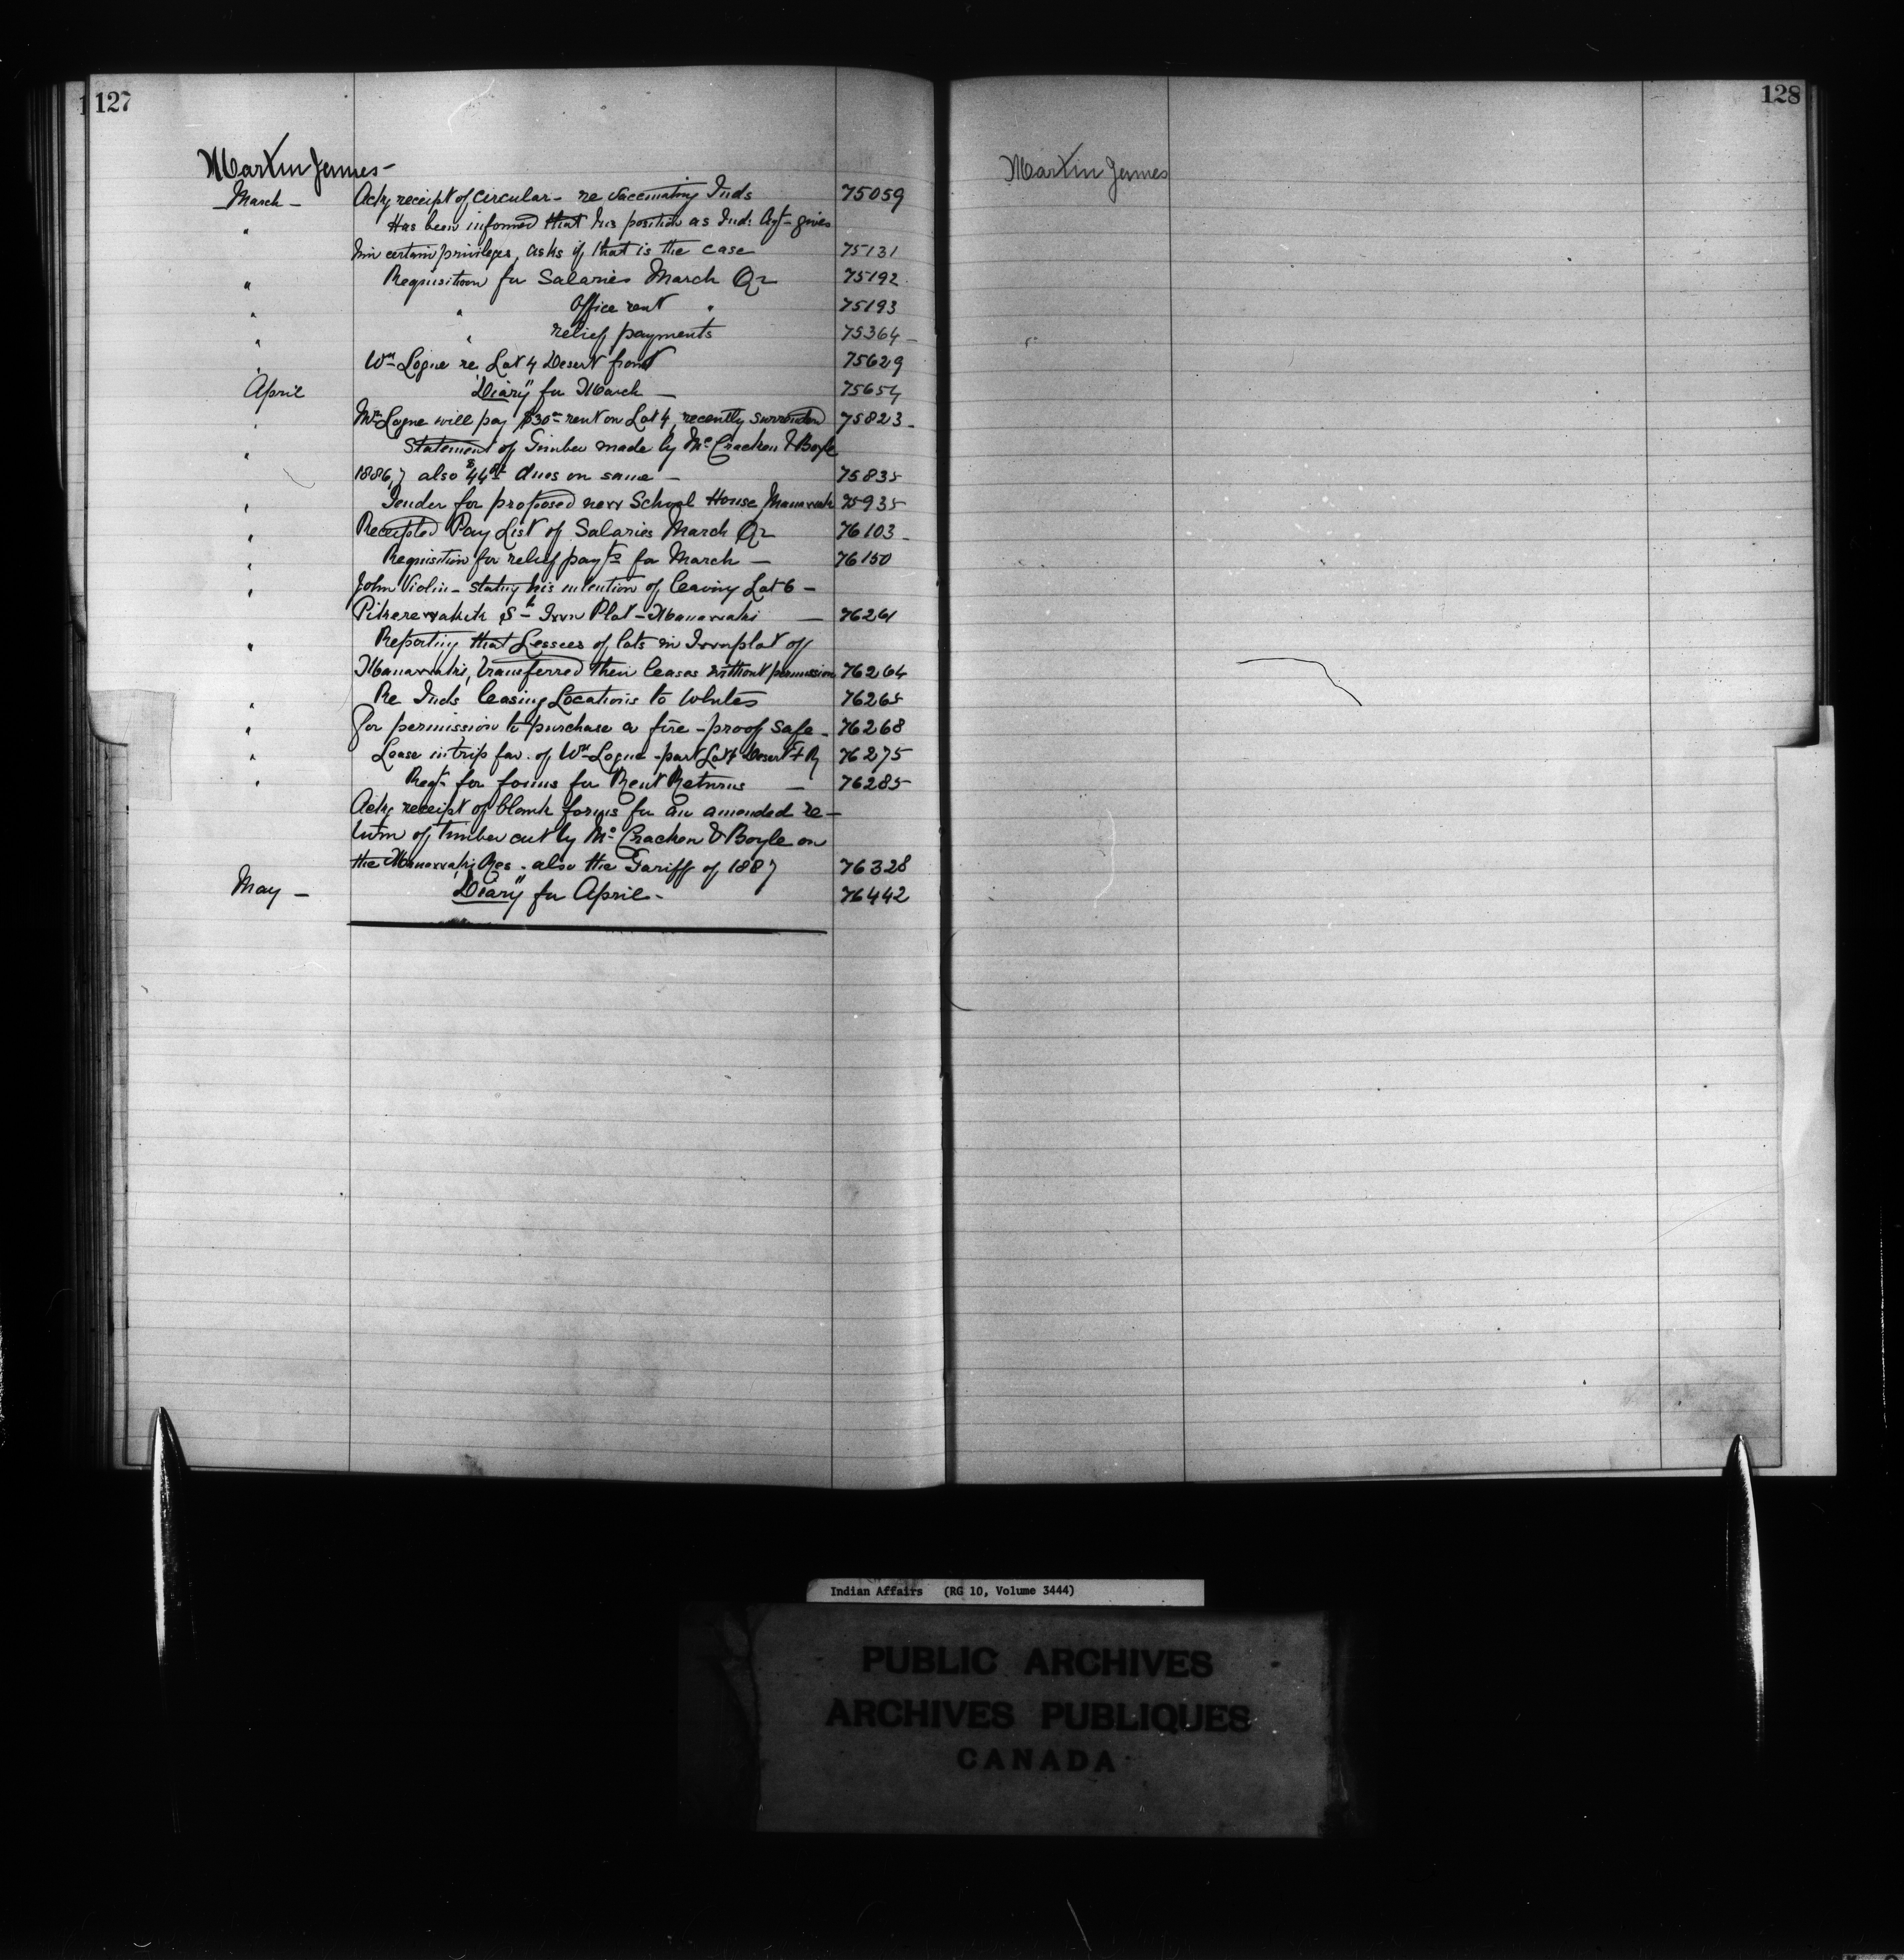 127
Martin James -
March - Ackg receipt of circular - re vaccinating Inds 75059
" Has been informed that his position as Ind. Agt - gives
him certain privileges, asks if that is the case 75131
" Requisition for Salaries March Qr 75192
" " Office rent " 75193
" " relief payments 75364 -
" Wm Logue re Lot 4 Desert front 75629
April "Diary" for March - 75654
" Mr Logue will pay $30 rent on Lot 4, recently surrendered 75823 -
" Statement of Timber made by Mc Cracken & Boyle
1886,7 also $44 dues on same - 75835
" Tender for proposed new School House Maniwaki 75935
" Receipted Pay List of Salaries March Qr 76103 -
" Requisition for relief payts for March - 76150
" John Violin - stating his intention of leaving Lot 6 -
St Town Plot - Maniwaki - 76261
" Reporting that Lessees of lots in Town plot of
Maniwaki, transferred their leases without permission 76264
" Re Inds leasing Locations to Whites 76265
" For permission to purchase a fire-proof safe - 76268
" Lease in trip fav. of Wm Logue - part Lot 4 Desert F R 76275
" Reqt for forms for Rent Returns - 76285
Ackg receipt of blank forms for an amended re-
turn of timber cut by Mc Cracken & Boyle on
the Maniwaki Res - also the Tariff of 1887 76328
May - "Diary" for April - 76442
128
Martin James
Indian Affairs (RG 10, Volume 3444)
PUBLIC ARCHIVES
ARCHIVES PUBLIQUES
CANADA